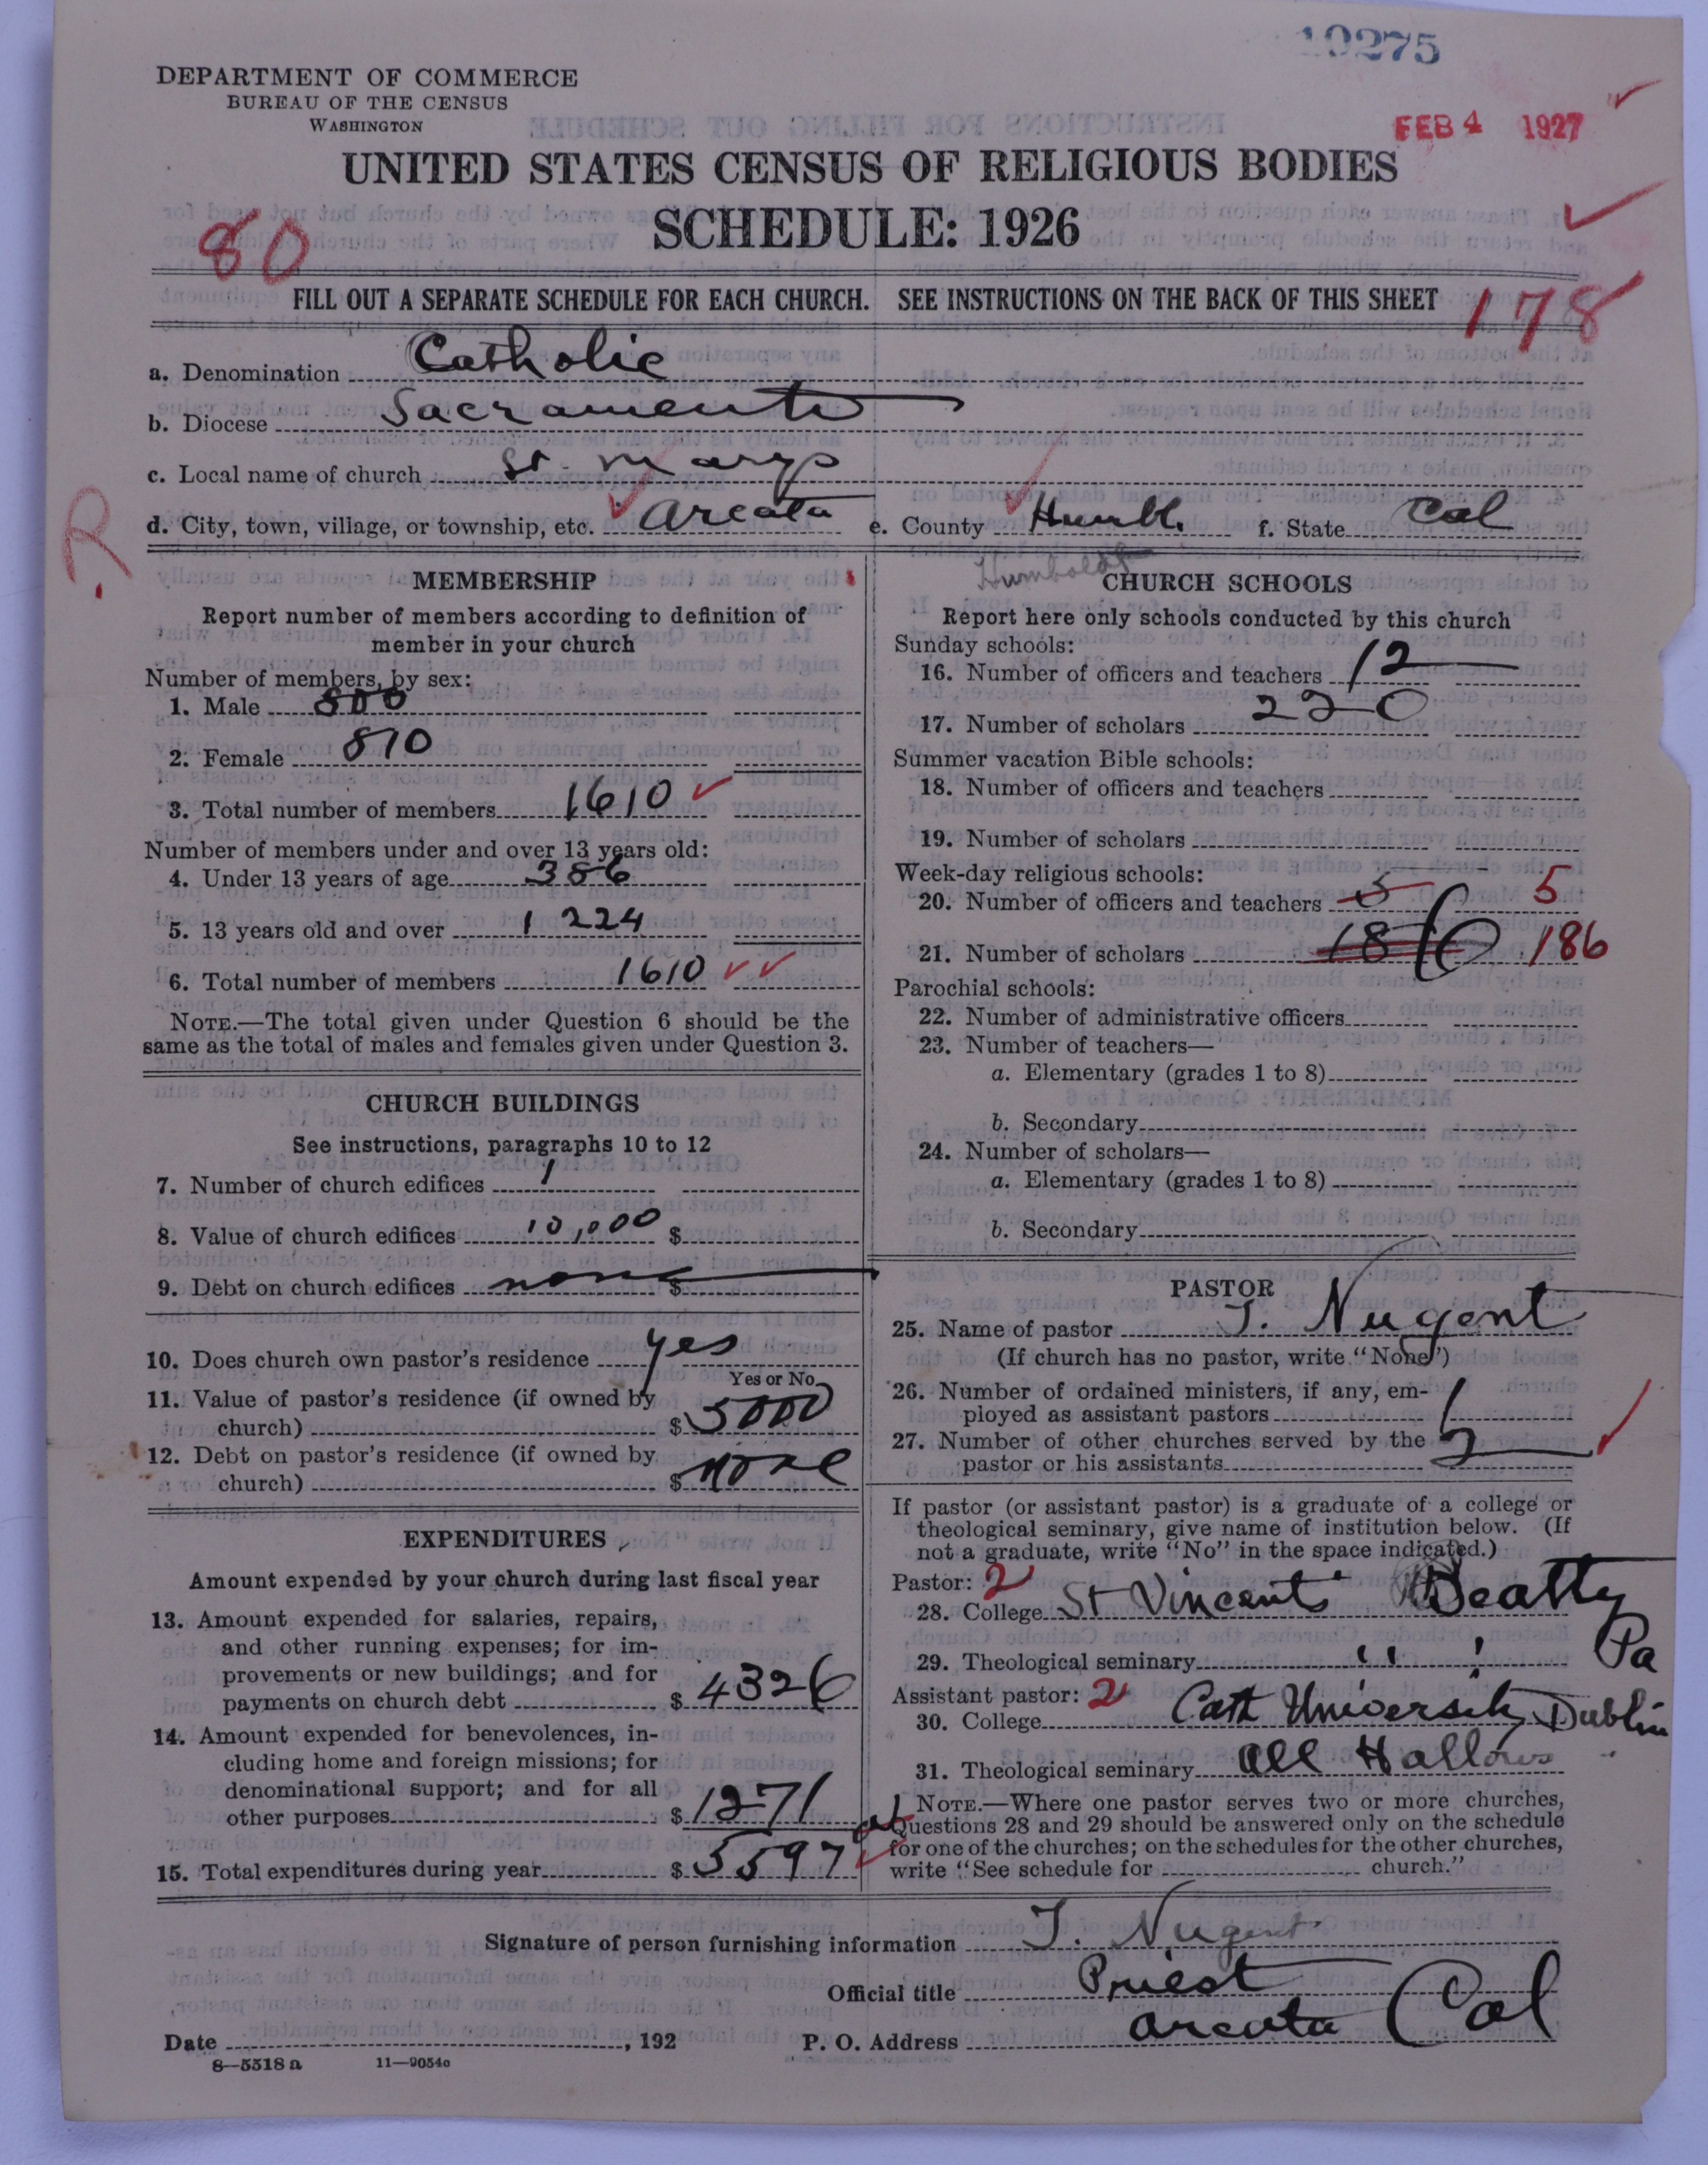 19275
DEPARTMENT OF COMMERCE
BUREAU OF THE CENSUS
WASHINGTON
FEB 4 1927
UNITED STATES CENSUS OF RELIGIOUS BODIES
SCHEDULE: 1926
80
FILL OUT A SEPARATE SCHEDULE FOR EACH CHURCH. SEE INSTRUCTIONS ON THE BACK OF THIS SHEET
178
a. Denomination Catholic
b. Diocese Sacramento
c. Local name of church St. Marys
d. City, town, village, or township, etc. Arcata e. County Humbl. f. State Cal
R
Humboldt
MEMBERSHIP
Report number of members according to definition of
member in your church
Number of members, by sex:
1. Male 800
2. Female 810
3. Total number of members 1610
Number of members under and over 13 years old:
4. Under 13 years of age 386
5. 13 years old and over 1224
6. Total number of members 1610
NOTE.—The total given under Question 6 should be the
same as the total of males and females given under Question 3.
CHURCH BUILDINGS
See instructions, paragraphs 10 to 12
7. Number of church edifices 1
8. Value of church edifices 10,000 $
9. Debt on church edifices none $
10. Does church own pastor's residence yes
Yes or No
11. Value of pastor's residence (if owned by
church) $ 5000
12. Debt on pastor's residence (if owned by
church) $ none
EXPENDITURES
Amount expended by your church during last fiscal year
13. Amount expended for salaries, repairs,
and other running expenses; for im-
provements or new buildings; and for
payments on church debt $ 4326
14. Amount expended for benevolences, in-
cluding home and foreign missions; for
denominational support; and for all
other purposes $ 1271
15. Total expenditures during year $ 5597
CHURCH SCHOOLS
Report here only schools conducted by this church
Sunday schools:
16. Number of officers and teachers 12
17. Number of scholars 220
Summer vacation Bible schools:
18. Number of officers and teachers
19. Number of scholars
Week-day religious schools:
20. Number of officers and teachers 5 5
21. Number of scholars 186 186
Parochial schools:
22. Number of administrative officers
23. Number of teachers—
a. Elementary (grades 1 to 8)
b. Secondary
24. Number of scholars—
a. Elementary (grades 1 to 8)
b. Secondary
PASTOR
25. Name of pastor T. Nugent
(If church has no pastor, write "None")
26. Number of ordained ministers, if any, em-
ployed as assistant pastors 1
27. Number of other churches served by the
pastor or his assistants 2
If pastor (or assistant pastor) is a graduate of a college or
theological seminary, give name of institution below. (If
not a graduate, write "No" in the space indicated.)
Pastor: 2
28. College St Vincents Beatty
Pa
29. Theological seminary " "
Assistant pastor: 2
30. College Cath University Dublin
31. Theological seminary All Hallows
NOTE.—Where one pastor serves two or more churches,
Questions 28 and 29 should be answered only on the schedule
for one of the churches; on the schedules for the other churches,
write "See schedule for church."
Signature of person furnishing information T. Nugent
Official title Priest
Date , 192 P. O. Address Arcata Cal
8—5518 a 11—9054c